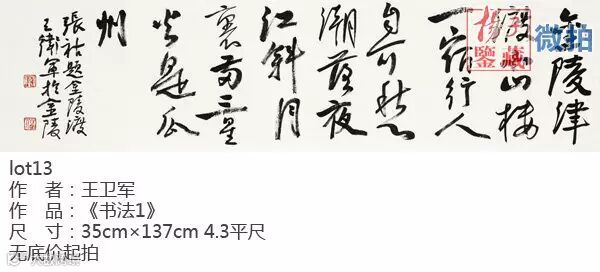 金陵津
渡小山樓
一宿行人
自可愁
潮落夜
江斜月
裏兩三星
火是瓜
州
張祜題金陵渡
王衛軍於金陵
微拍
lot13
作 者：王卫军
作 品：《书法1》
尺 寸：35cm×137cm 4.3平尺
无底价起拍